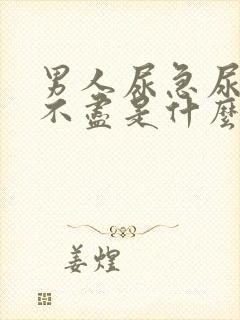 男人尿急尿
不盡是什麼
姜煌